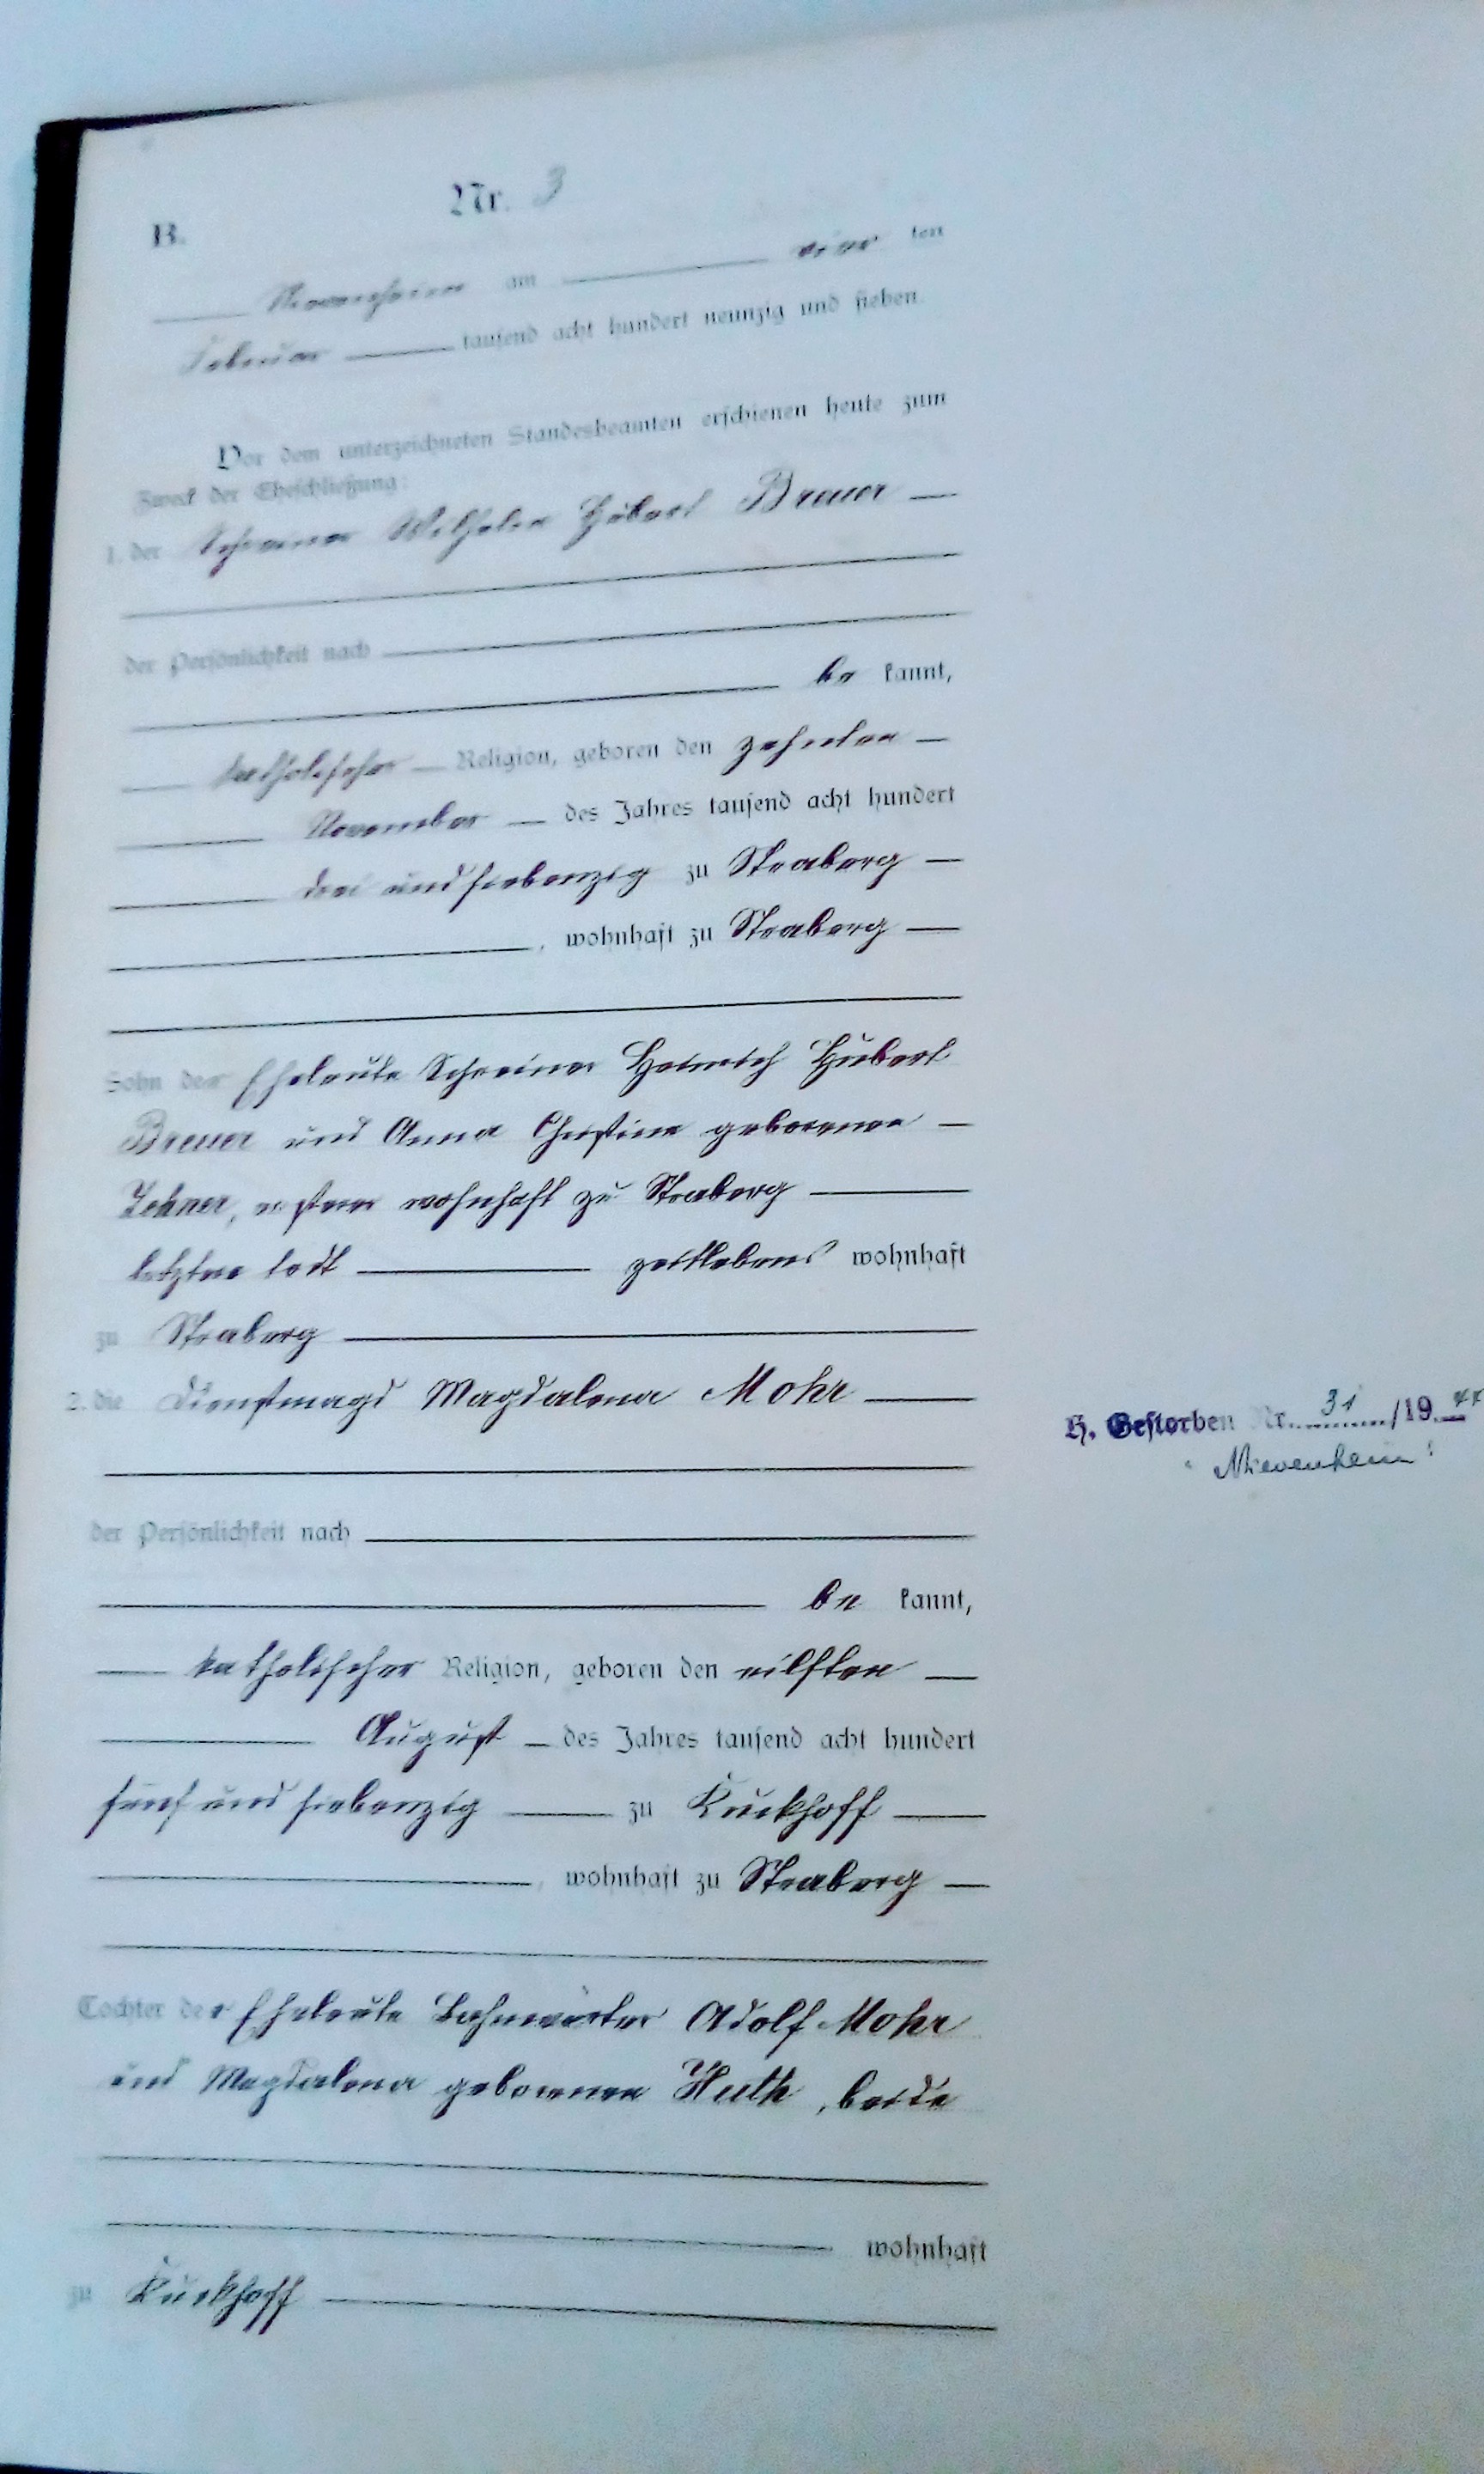 B.
Nr. 3
Nievenheim am vier ten
Februar tausend acht hundert neunzig und sieben.
Vor dem unterzeichneten Standesbeamten erschienen heute zum
Zweck der Eheschließung:
1. der Schreiner Wilhelm Hubert Breuer
der Persönlichkeit nach
be kannt,
katholischer Religion, geboren den zehnten
November des Jahres tausend acht hundert
drei und siebenzig zu Straberg
, wohnhaft zu Straberg
Sohn der Eheleute Schreiner Heinrich Hubert
Breuer und Anna Christine geborenen
erstere wohnhaft zu Straberg
letztere todt zeitlebens wohnhaft
zu Straberg
2. die Dienstmagd Magdalena Mohr
H. Gestorben Nr. 31/1944
Nievenheim
der Persönlichkeit nach
be kannt,
katholischer Religion, geboren den eilften
August des Jahres tausend acht hundert
fünf und siebenzig zu Kuckhoff
, wohnhaft zu Straberg
Tochter der Eheleute Bahnwärter Adolf Mohr
und Magdalena geborenen Huth, beide
wohnhaft
zu Kuckhoff